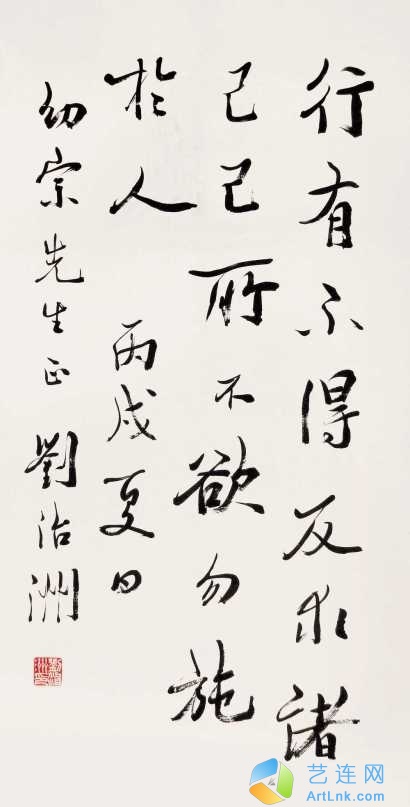 行有不得反求諸
己己所不欲勿施
於人 丙戌夏日
幼宗先生正 劉治洲
艺连网
ArtLnk.com